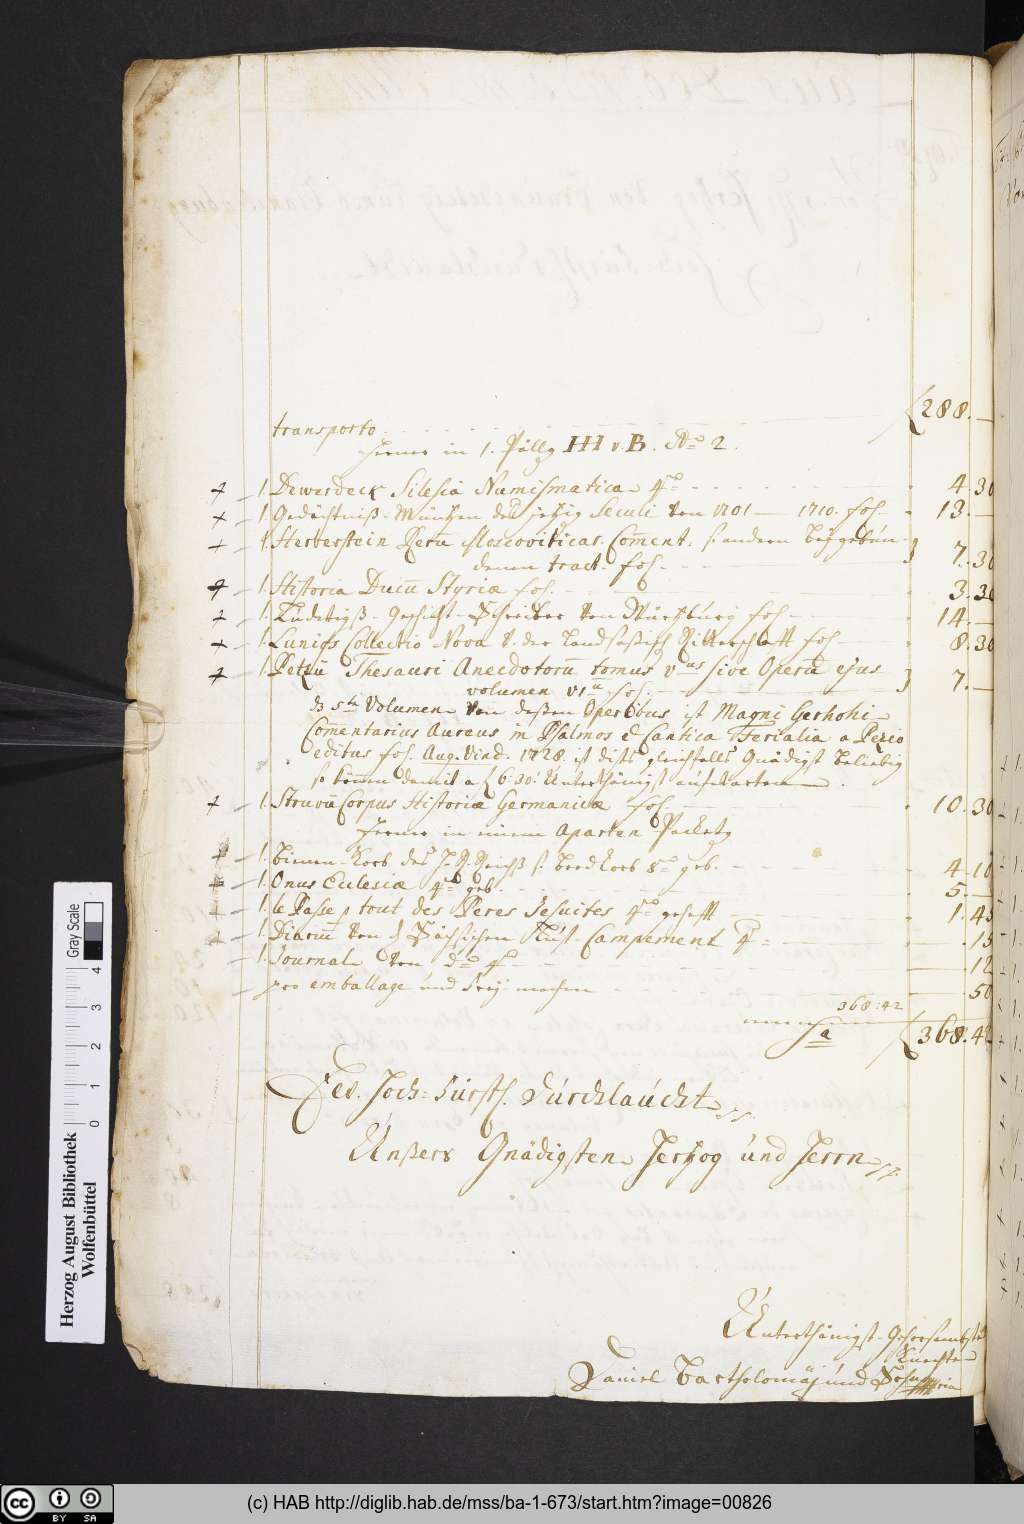 transporto . . . . . . . . . ƒ 288. —
Ferner in 1. Pällg HH v. B. No 2.
1. Dewerdeck Silesia Numismatica 4to - - 4. 30
1. Gedächtniß-Müntzen des jetzig Seculi von 1701 — 1710. fol. - 13. —
1. Herberstein Reru Moscoviticar. Coment. s. andern beygebun-
denen tract. fol. - - 7. 30
1. Historia Ducu Styriæ fol. - - 3. 30
1. Ludwigß Geschicht-Schreiber von Würtzburg fol. - 14. —
1. Lunigs Collectio Nova v. der Landsäßisch Ritterschafft fol. - 8. 30
1. Petzÿ Thesauri Anecdotoru tomus Vus sive Operu ejus
volumen VIu fol. - 7. —
dz 5te Volumen von deßen Operibus ist Magni Gerhohi
Comentarius Aureus in Psalmos et Cantica Ferialia a Pezio
editus fol. Aug. Vind. 1728. ist dises gleichfalls Gnädigst beliebig
so können damit a ƒ 6:30. Unterthänigst aufwarten.
1. Struvÿ Corpus Historiæ Germanicæ fol. - 10. 30
Ferner in einem aparten Packetg
1. Bienen-Korb des H. R. Reichß s. Brodkorb 8o geb. - 4. 10
1. Onus Eclesiæ 4to geb. - 5. —
1. le Passe p tout des Peres Jesuites 4to gehefft - 1. 45
1. Diariu von d. Sächsischen Lust-Campement 4to - 15
1. Journal von do 4to - 12
pro emballage und frey machen - 50
368:42
Sa ƒ 368. 42
Sr. Hoch-Fürstl. Durchlaucht
Unßers Gnädigsten Hertzog und Herrn
Unterthänigst-Gehorsambste
Knechte
Daniel Bartholomäj und Sohn
Herzog August Bibliothek
Wolfenbüttel
Gray Scale
0 1 2 3 4
cc BY SA
(c) HAB http://diglib.hab.de/mss/ba-1-673/start.htm?image=00826